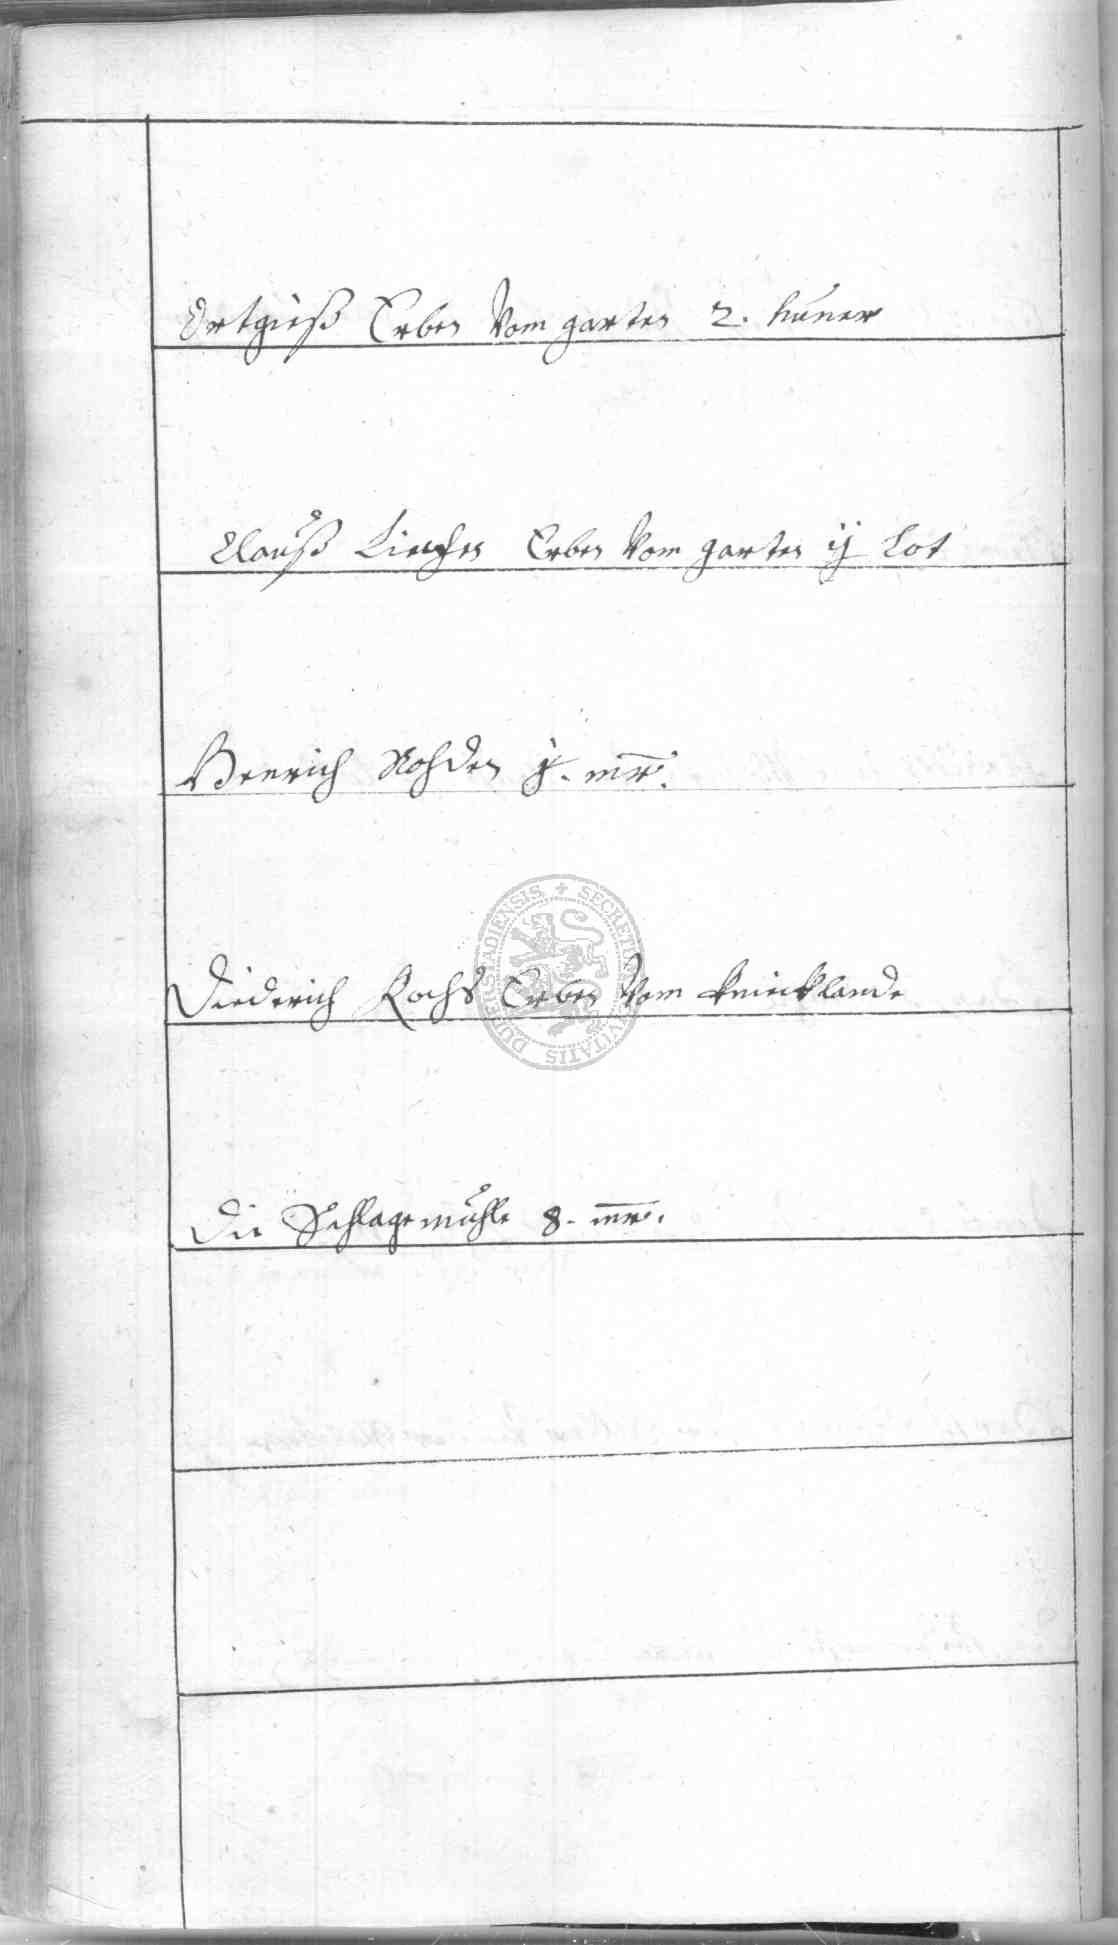 Ortgieß Erben Vom garten 2. huner
Clauß Erben Vom garten ij Lot
Henrich Rohden j. mr.
SECRETUM CIVITATIS DUDERSTADIENSIS
Diederich Kochs Erben Vom knicklande
Die Schlagemühle 8. mr.